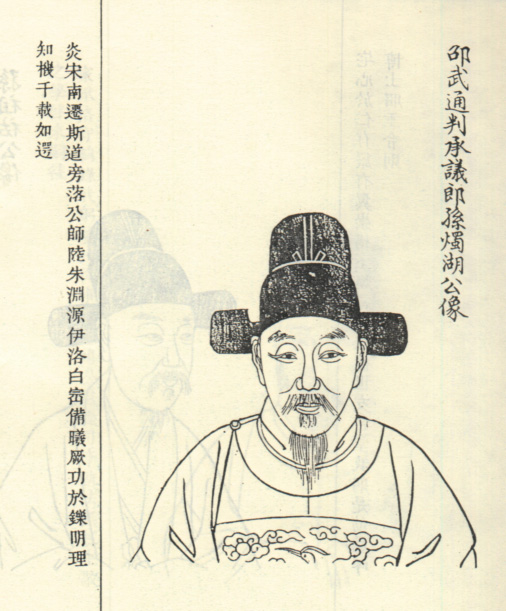 邵武通判承議郎孫燭湖公像
炎宋南遷斯道旁落公師陸朱淵源伊洛白密備曦厥功於鑠明理
知機千載如遌